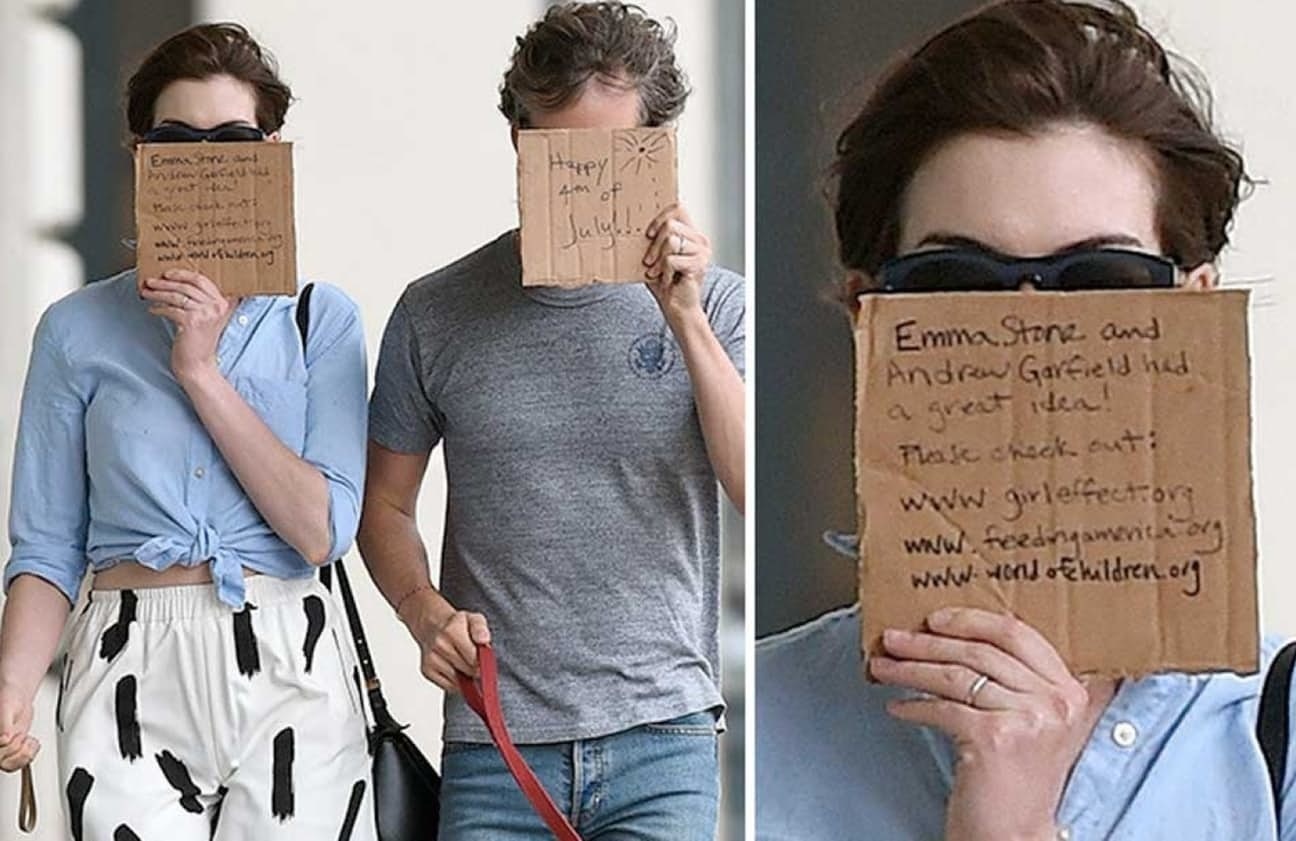 Emma Stone and
Andrew Garfield had
a great idea!
Please check out:
www girleffect.org
www.feedingamerica.org
www.worldofchildren.org
Happy
4th of
July!!!
Emma Stone and
Andrew Garfield had
a great idea!
Please check out:
www girleffect.org
www.feedingamerica.org
www.worldofchildren.org